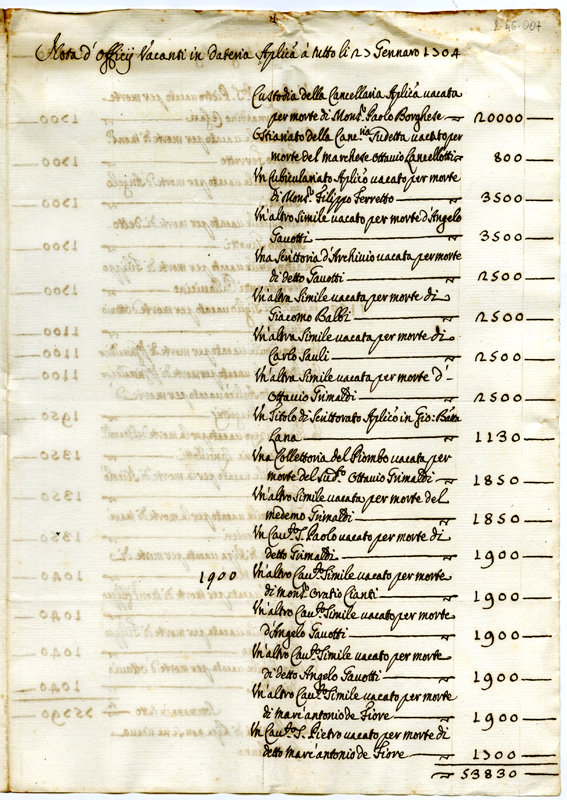 Nota d'Officij Vacanti in Dateria Aplica à tutto li 23 Gennaro 1704
Custodia della Cancellaria Aplica vacata
per morte di Monsr. Paolo Borghese 20000
Ostiariato della Canc.ria Sudetta vacato per
morte del marchese Ottavio Lancellotti 800
Un Cubiculariato Aplico vacato per morte
di Monsr. Filippo Ferretto 3500
Un'altro Simile vacato per morte d'Angelo
Gavotti 3500
Una Scrittoria d'Archivio vacata per morte
di detto Gavotti 2500
Un'altra Simile vacata per morte di
Giacomo Balbi 2500
Un'altra Simile vacata per morte di
Carlo Sauli 2500
Un'altra Simile vacata per morte d'
Ottavio Grimaldi 2500
Un Titolo di Scrittorato Aplico in Gio: Batta
Lana 1130
Una Collettoria del Piombo vacata per
morte del Sud.to Ottavio Grimaldi 1850
Un'altro Simile vacata per morte del
medemo Grimaldi 1850
Un Cau.to S. Paolo vacato per morte di
detto Grimaldi 1900
1900 Un'altro Cau.to Simile vacato per morte
di Monsr. Oratio Cianti 1900
Un'altro Cau.to Simile vacato per morte
d'Angelo Gavotti 1900
Un'altro Cau.to Simile vacato per morte
di detto Angelo Gavotti 1900
Un'altro Cau.to Simile vacato per morte
di marc'antonio de Fiore 1900
Un Cau.to S. Pietro vacato per morte di
detto marc'antonio de Fiore 1300
53830